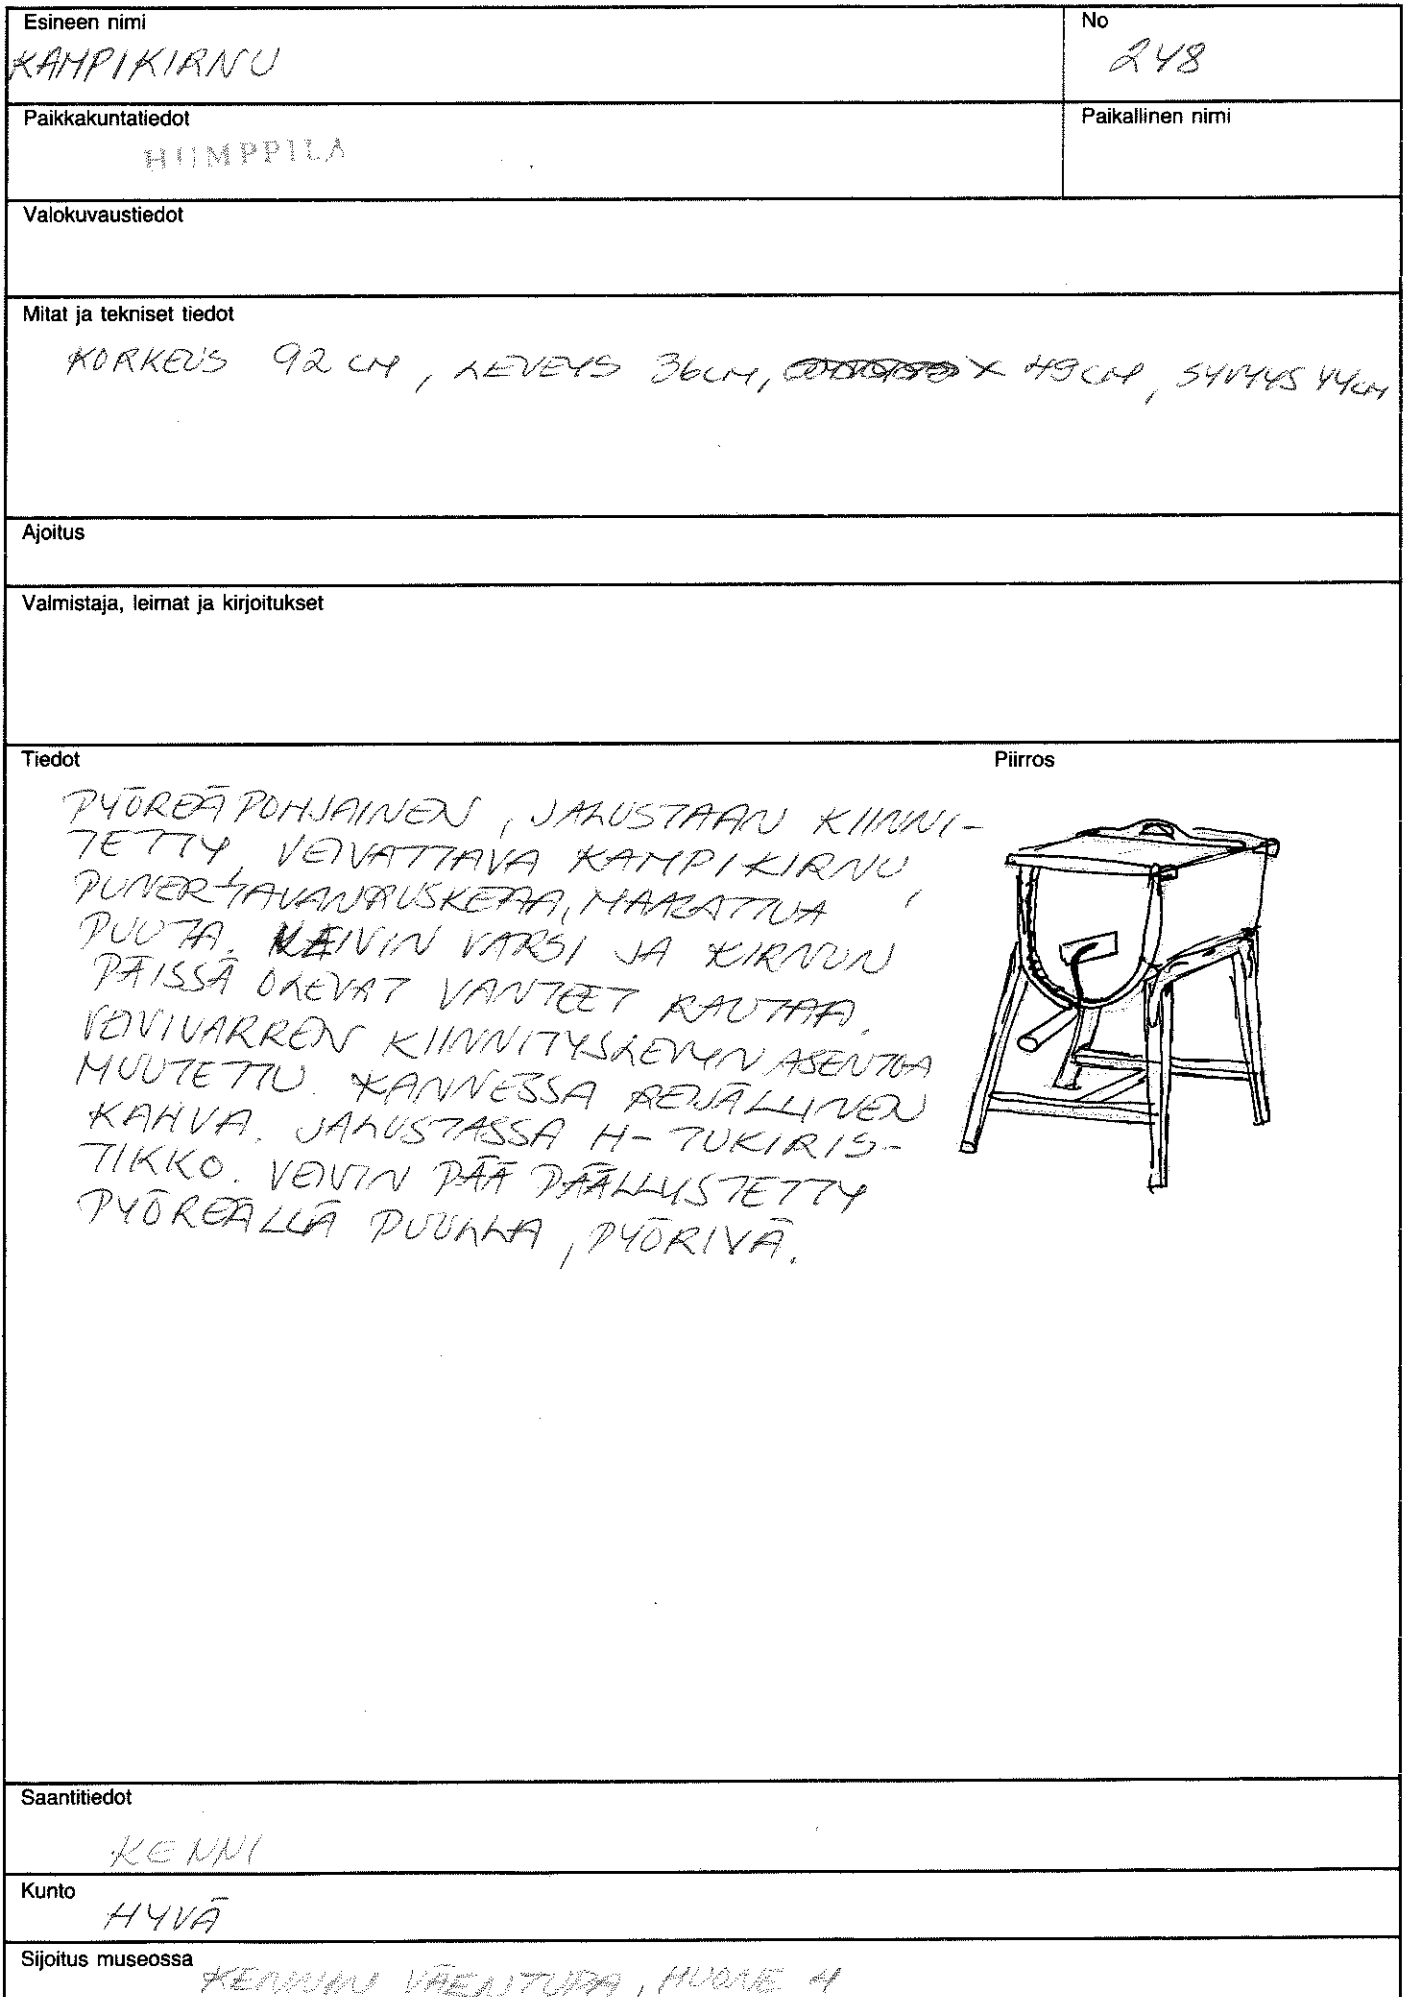 Esineen nimi
KAMPIKIRNU
No
248
Paikkakuntatiedot
HUMPPILA
Paikallinen nimi
Valokuvaustiedot
Mitat ja tekniset tiedot
KORKEUS 92 CM, LEVEYS 36CM, X 49CM, SYVYYS 44CM
Ajoitus
Valmistaja, leimat ja kirjoitukset
Tiedot
Piirros
PYÖREÄPOHJAINEN, JALUSTAAN KIINNI-
TETTY, VEIVATTAVA KAMPIKIRNU,
PUNERTAVANRUSKEAA, MAALATTUA
PUUTA. VEIVIN VARSI JA KIRNUN
PÄISSÄ OLEVAT VANTEET RAUTAA.
VEIVIVARREN KIINNITYSLEVYN ASENTOA
MUUTETTU. KANNESSA REIJÄLLINEN
KAHVA. JALUSTASSA H-TUKIRIS-
TIKKO. VEIVIN PÄÄ PÄÄLLYSTETTY
PYÖREÄLLÄ PUULLA, PYÖRIVÄ.
Saantitiedot
KENNI
Kunto
HYVÄ
Sijoitus museossa
KENNIN VÄENTUPA, HUONE 4